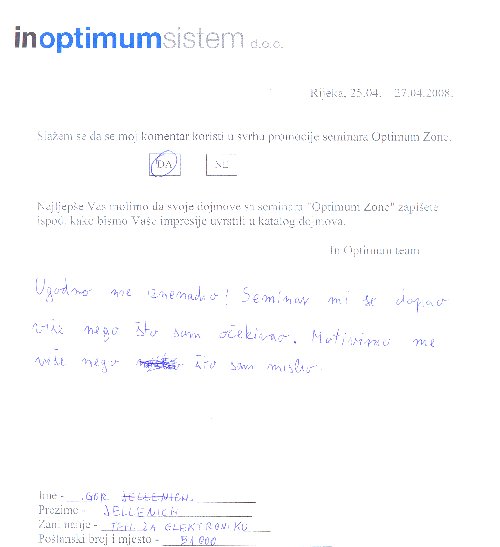 inoptimumsistem d.o.o.
Rijeka, 25.04. - 27.04.2008.
Slažem se da se moj komentar koristi u svrhu promocije seminara Optimum Zone.
DA NE
Najljepše Vas molimo da svoje dojmove sa seminara "Optimum Zone" zapišete
ispod, kako bismo Vaše impresije uvrstili u katalog dojmova.
In Optimum team
Ugodno me iznenadio! Seminar mi se dopao
više nego što sam očekivao. Motivirao me
više nego što sam mislio.
Ime - IGOR
Prezime - JELLENICH
Zanimanje - TEH. ZA ELEKTRONIKU
Poštanski broj i mjesto - 51000